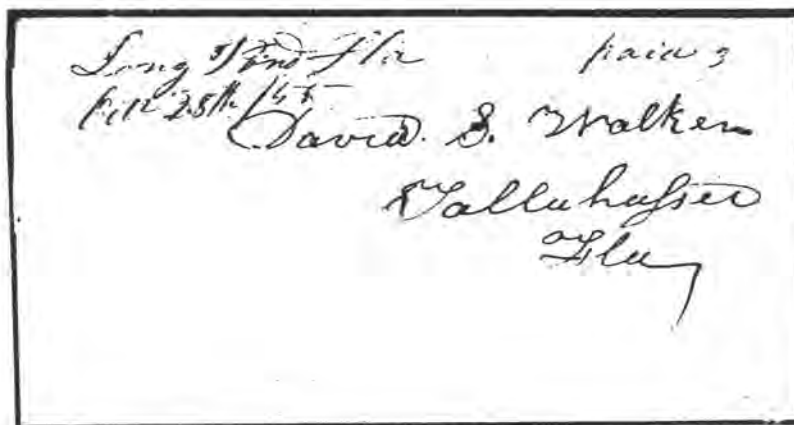 Long Pond Fla paid 3
Feb 25th /55
David. S. Walker
Tallahassee
Fla